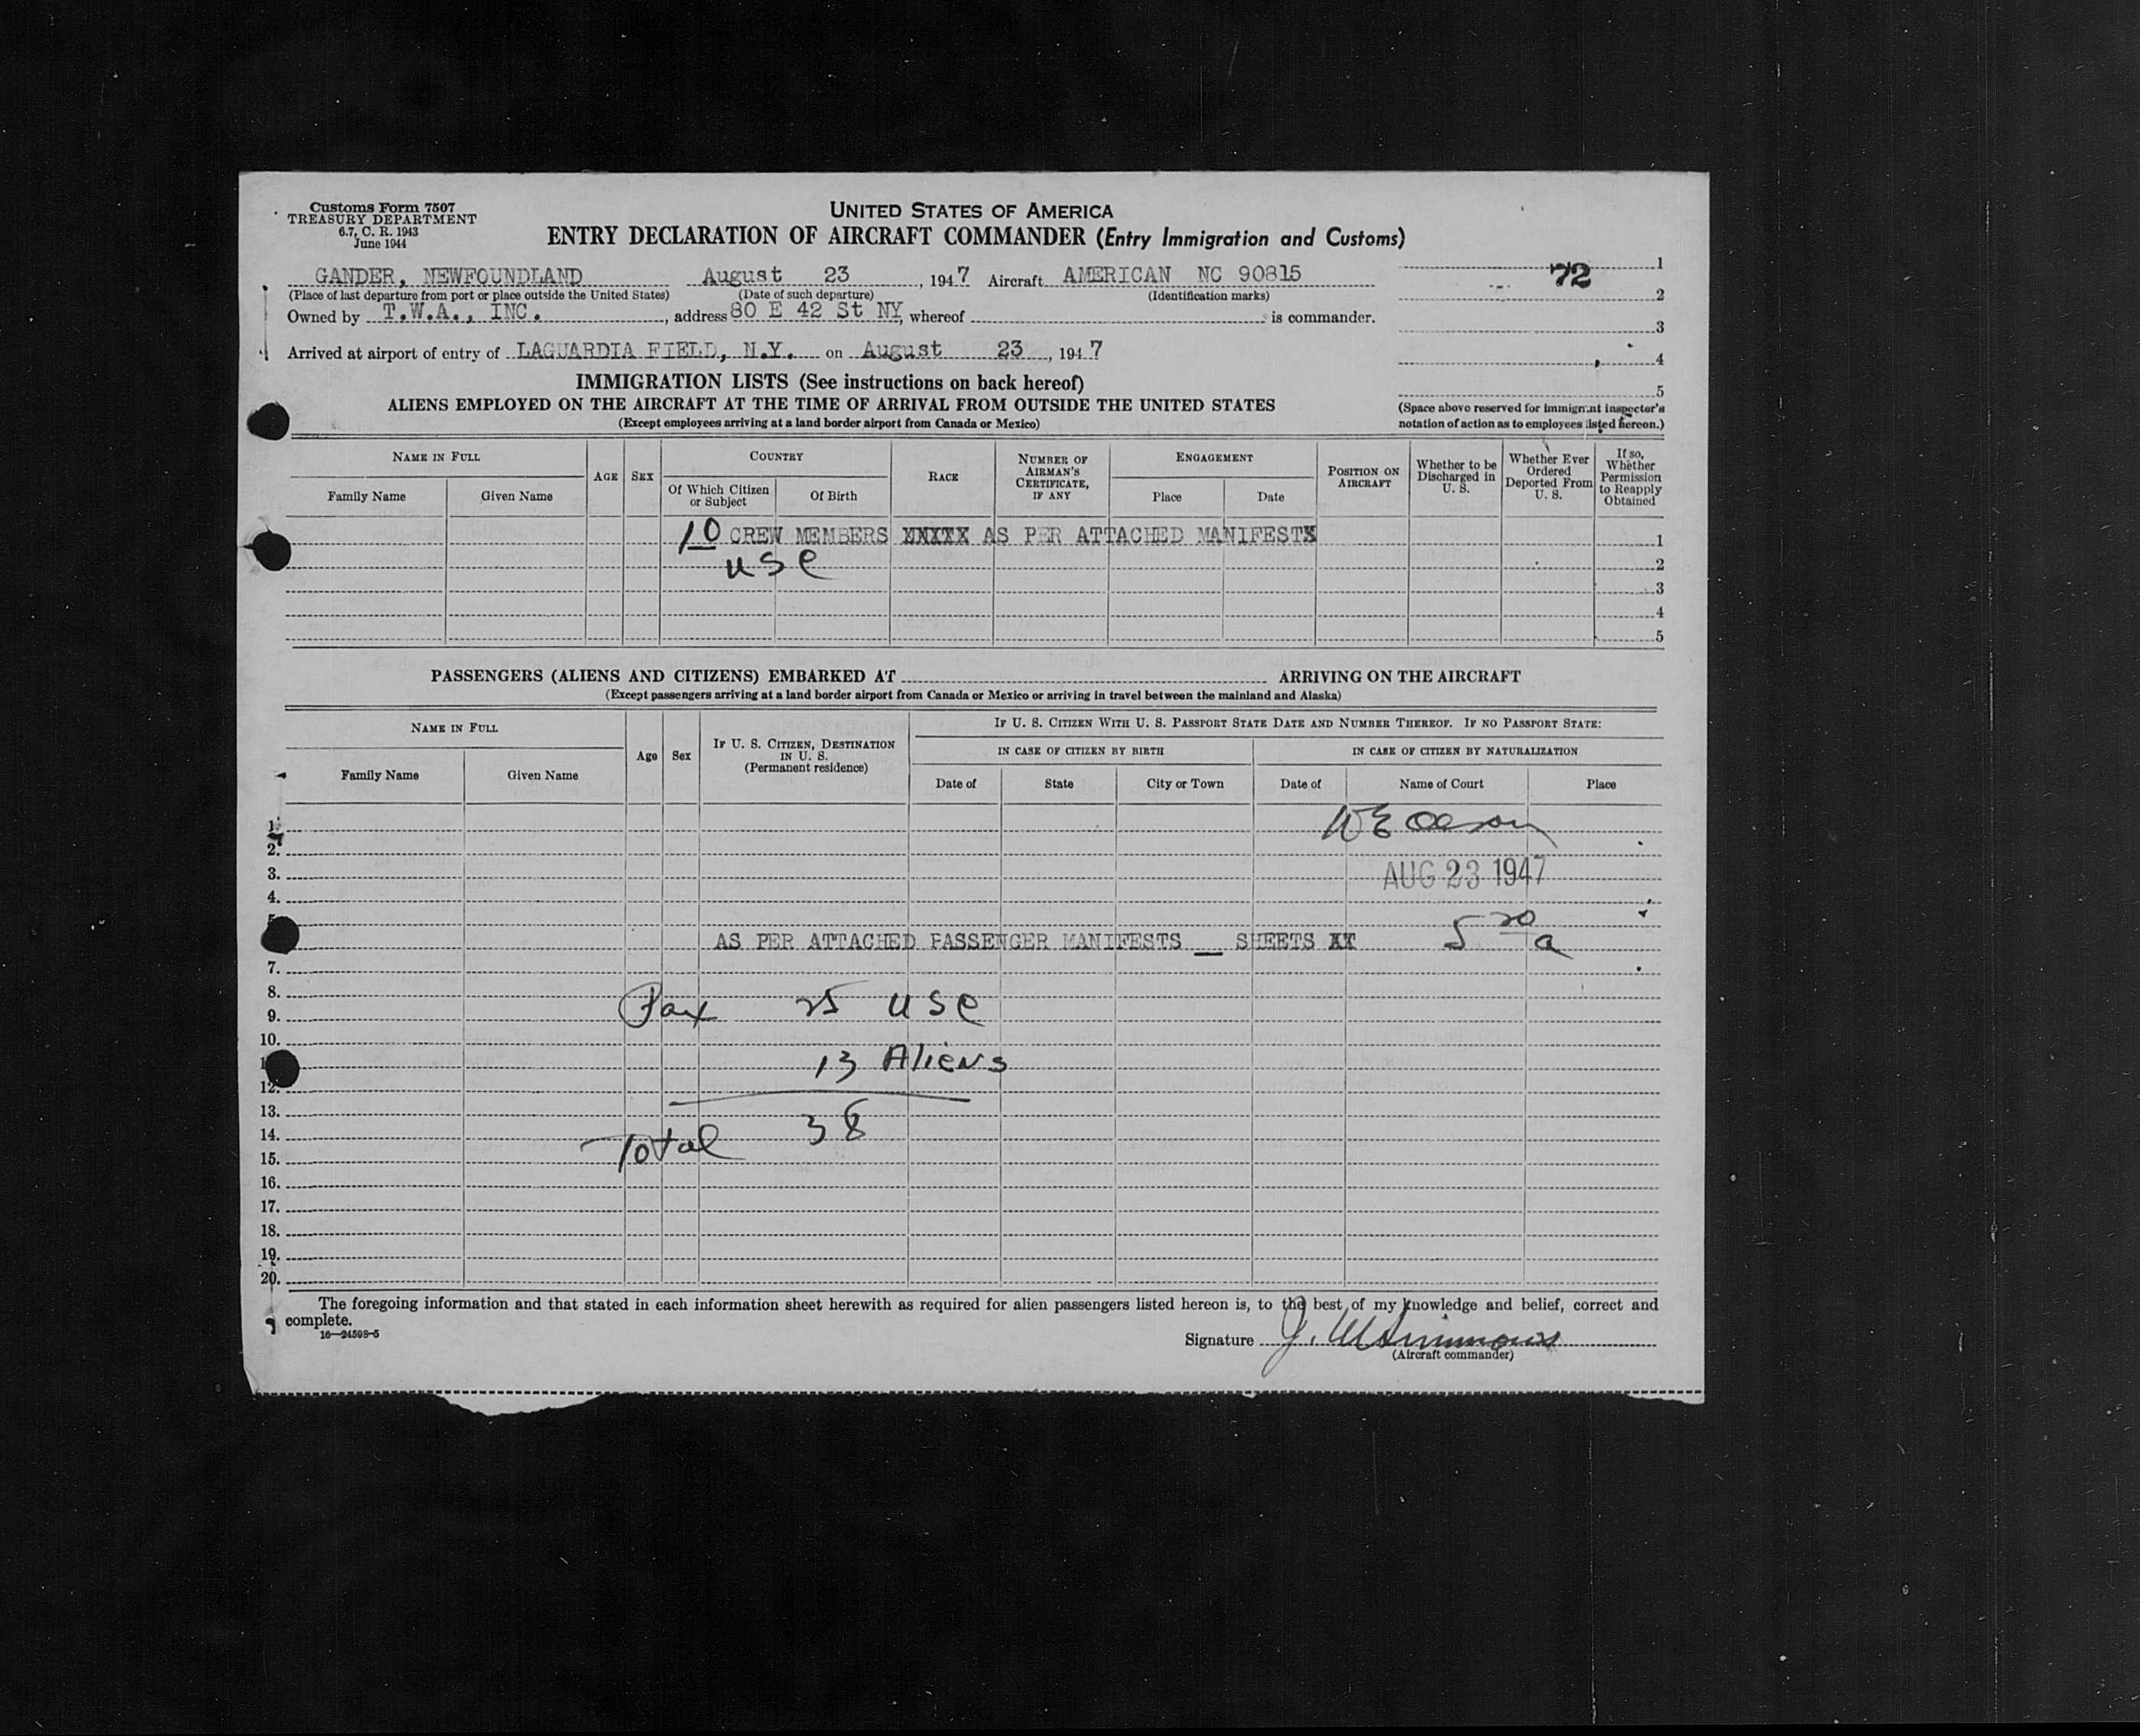 Customs Form 7507
TREASURY DEPARTMENT
6.7, C. R. 1943
June 1944
UNITED STATES OF AMERICA
ENTRY DECLARATION OF AIRCRAFT COMMANDER (Entry Immigration and Customs)
GANDER, NEWFOUNDLAND August 23, 1947 Aircraft AMERICAN NC 90815
(Place of last departure from port or place outside the United States) (Date of such departure) (Identification marks)
Owned by T.W.A., INC., address 80 E 42 St NY, whereof is commander.
Arrived at airport of entry of LAGUARDIA FIELD, N.Y. on August 23, 1947
72
1
2
3
4
5
(Space above reserved for immigrant inspector's
notation of action as to employees listed hereon.)
IMMIGRATION LISTS (See instructions on back hereof)
ALIENS EMPLOYED ON THE AIRCRAFT AT THE TIME OF ARRIVAL FROM OUTSIDE THE UNITED STATES
(Except employees arriving at a land border airport from Canada or Mexico)
NAME IN FULL
Family Name
Given Name
AGE
SEX
COUNTRY
Of Which Citizen
or Subject
Of Birth
RACE
NUMBER OF
AIRMAN'S
CERTIFICATE,
IF ANY
ENGAGEMENT
Place
Date
POSITION ON
AIRCRAFT
Whether to be
Discharged in
U. S.
Whether Ever
Ordered
Deported From
U. S.
If so,
Whether
Permission
to Reapply
Obtained
10 CREW MEMBERS XXXXX AS PER ATTACHED MANIFESTX 1
USC 2
3
4
5
PASSENGERS (ALIENS AND CITIZENS) EMBARKED AT ARRIVING ON THE AIRCRAFT
(Except passengers arriving at a land border airport from Canada or Mexico or arriving in travel between the mainland and Alaska)
NAME IN FULL
Family Name
Given Name
Age
Sex
IF U. S. CITIZEN, DESTINATION
IN U. S.
(Permanent residence)
IF U. S. CITIZEN WITH U. S. PASSPORT STATE DATE AND NUMBER THEREOF. IF NO PASSPORT STATE:
IN CASE OF CITIZEN BY BIRTH
Date of
State
City or Town
IN CASE OF CITIZEN BY NATURALIZATION
Date of
Name of Court
Place
1.
2.
3. AUG 23 1947
4.
5. 5 20 a
AS PER ATTACHED PASSENGER MANIFESTS __ SHEETS XX
7.
8.
9. Pax 25 USC
10.
13 Aliens
12.
13.
14. 38
15. Total
16.
17.
18.
19.
20.
The foregoing information and that stated in each information sheet herewith as required for alien passengers listed hereon is, to the best of my knowledge and belief, correct and
complete.
16—24598-5
Signature J. W Simmons
(Aircraft commander)